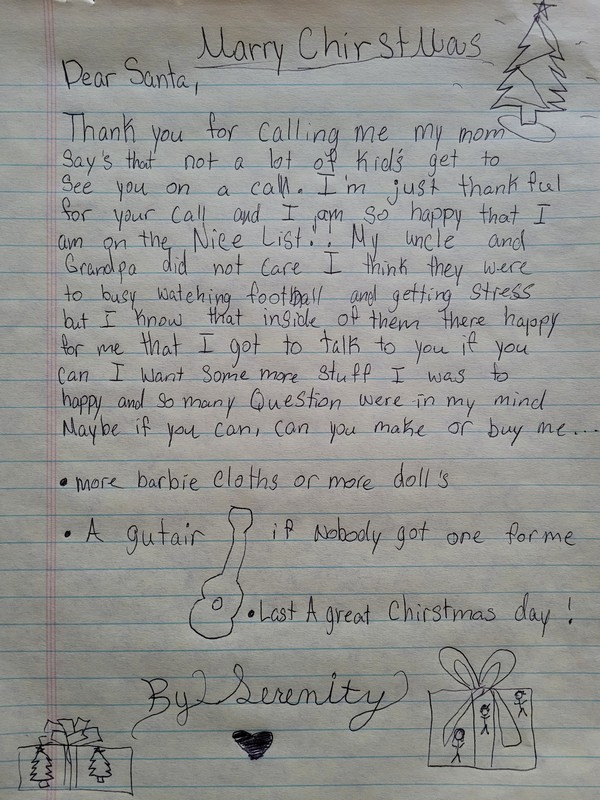 Marry ChirstMas
Dear Santa,
Thank you for calling me my mom
Say's that not a lot of kid's get to
See you on a call. I'm just thankful
for your call and I am so happy that I
am on the Nice List!! My uncle and
Grandpa did not care I think they were
to busy watching football and getting stress
but I know that inside of them there happy
for me that I got to talk to you if you
can I want some more stuff I was to
happy and so many Question were in my mind
Maybe if you can, can you make or buy me...
• more barbie cloths or more doll's
• A gutair if Nobody got one for me
• Last A great Chirstmas day!
By Serenity